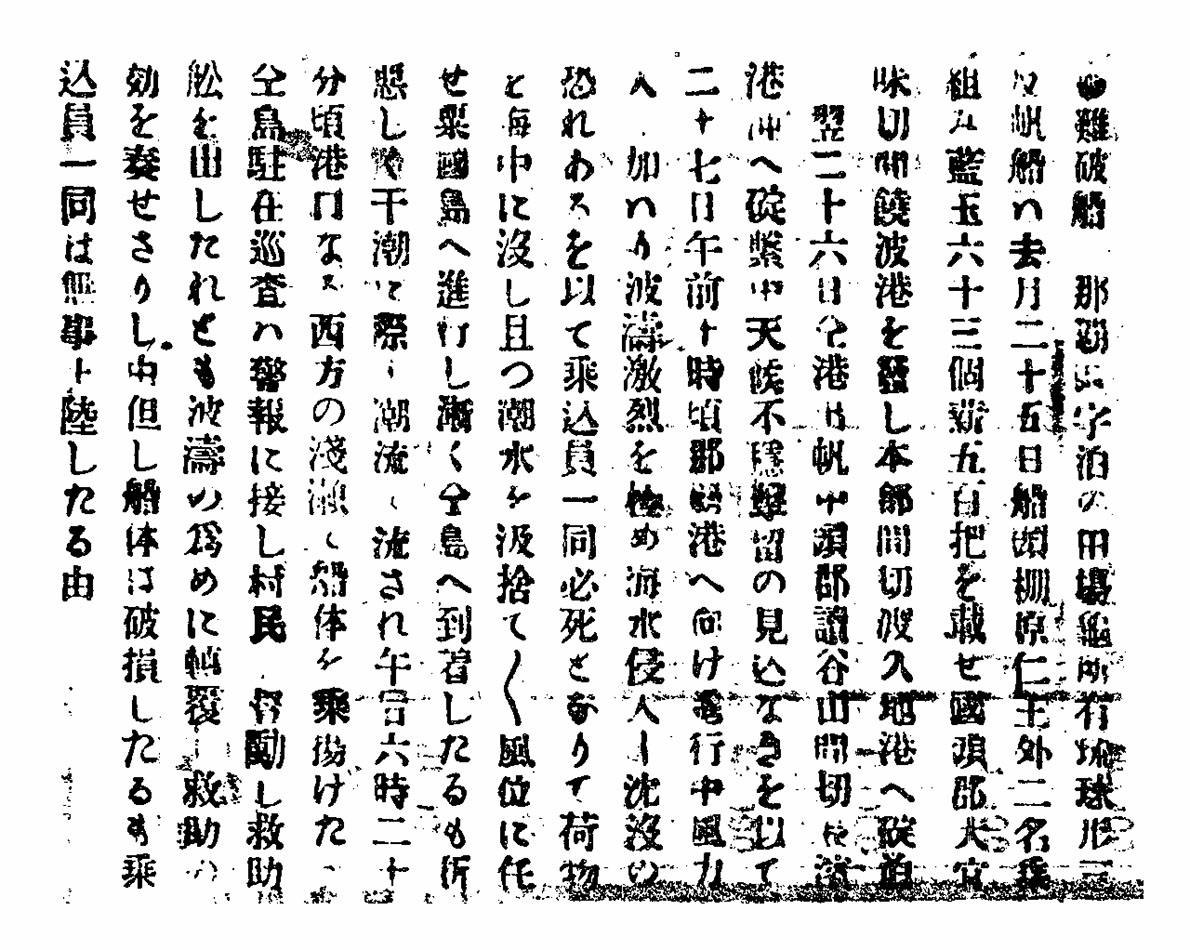 ●難破船 那覇 字泊の田場亀所有琉球形三
反帆船ハ去月二十五日船頭棚原仁王外二名乗
組ミ藍玉六十三個薪五百把を載せ國頭郡大宜
味切間饒波港を發し本部間切渡久地港へ碇泊
翌二十六日仝港出帆中頭郡讀谷山間切 濱
港沖へ碇繋中天候不穏繋留の見込なきを以て
二十七日午前十時頃那覇港へ向け進行中風力
 加ハり波濤激烈を極め海水侵入し沈没の
恐れあるを以て乘込員一同必死となりて荷物
と海中に没し且つ潮水を汲捨て〱風位に任
せ粟國島へ進行し漸く仝島へ到着したるも折
悪しく干潮に際し潮流に流され午后六時二十
分頃港口なる西方の淺瀬へ船体を乘揚けたり
仝島駐在巡査ハ警報に接し村民 督勵し救助
舩を出したれども波濤の為めに転覆し救助の
効を奏せさりし由但し船体は破損したるも乘
込員一同は無事上陸したる由